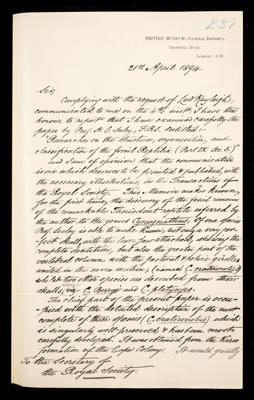 237
BRITISH MUSEUM (NATURAL HISTORY),
CROMWELL ROAD,
LONDON: S.W.
21st April 1894
Sir
Complying with the request of Lord Rayleigh,
communicated to me on the 4th inst. I have the
honour to report that I have examined carefully the
paper by Prof. H. G. Seeley, F.R.S. entitled:-
"Researches on the structure, organisation, and
classification of the fossil Reptilia (Part IX Sec. 5)"
and I am of opinion that the communication
is one which deserves to be printed & published, with
the necessary illustrations, in the Transactions of
the Royal Society. This Memoir makes known,
for the first time, the discovery of the fossil remains
of the remarkable Theriodont reptile referred by
the author to the genus Cynognathus. Of one species
Prof. Seeley is able to make known, not only a very per-
fect skull, with the lower jaw attached, showing the
complete dentition, but also the greater part of the
vertebral column with the pectoral & pelvic girdles
united in the same individual (named C. crateronotus)
whilst two other species are described from their
skulls, viz:- C. Berryi and C. platyceps.
The chief part of the present paper is occu-
pied with the detailed description of the most
complete of these species (C. crateronotus) which
is singularly well preserved & has been most
carefully developed. It was obtained from the Karoo
formation of the Cape Colony. It would greatly
To the Secretary of
the Royal Society.